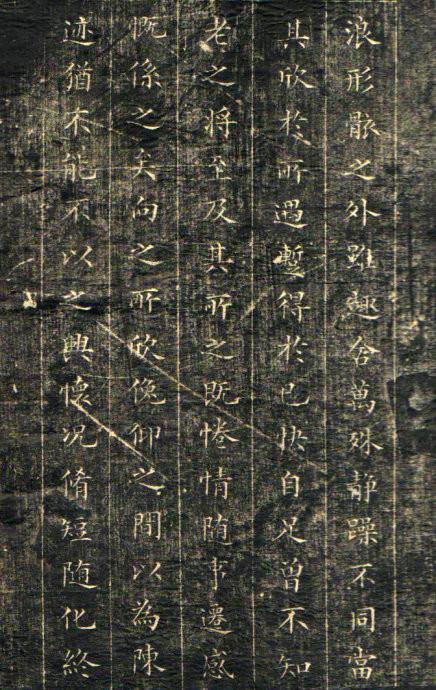 浪形骸之外雖趣舍萬殊静躁不同當
其欣於所遇蹔得於己快自足曾不知
老之將至及其所之既惓情随事遷感
慨係之矣向之所欣俛仰之間以為陳
迹猶不能不以之興懷况脩短随化終